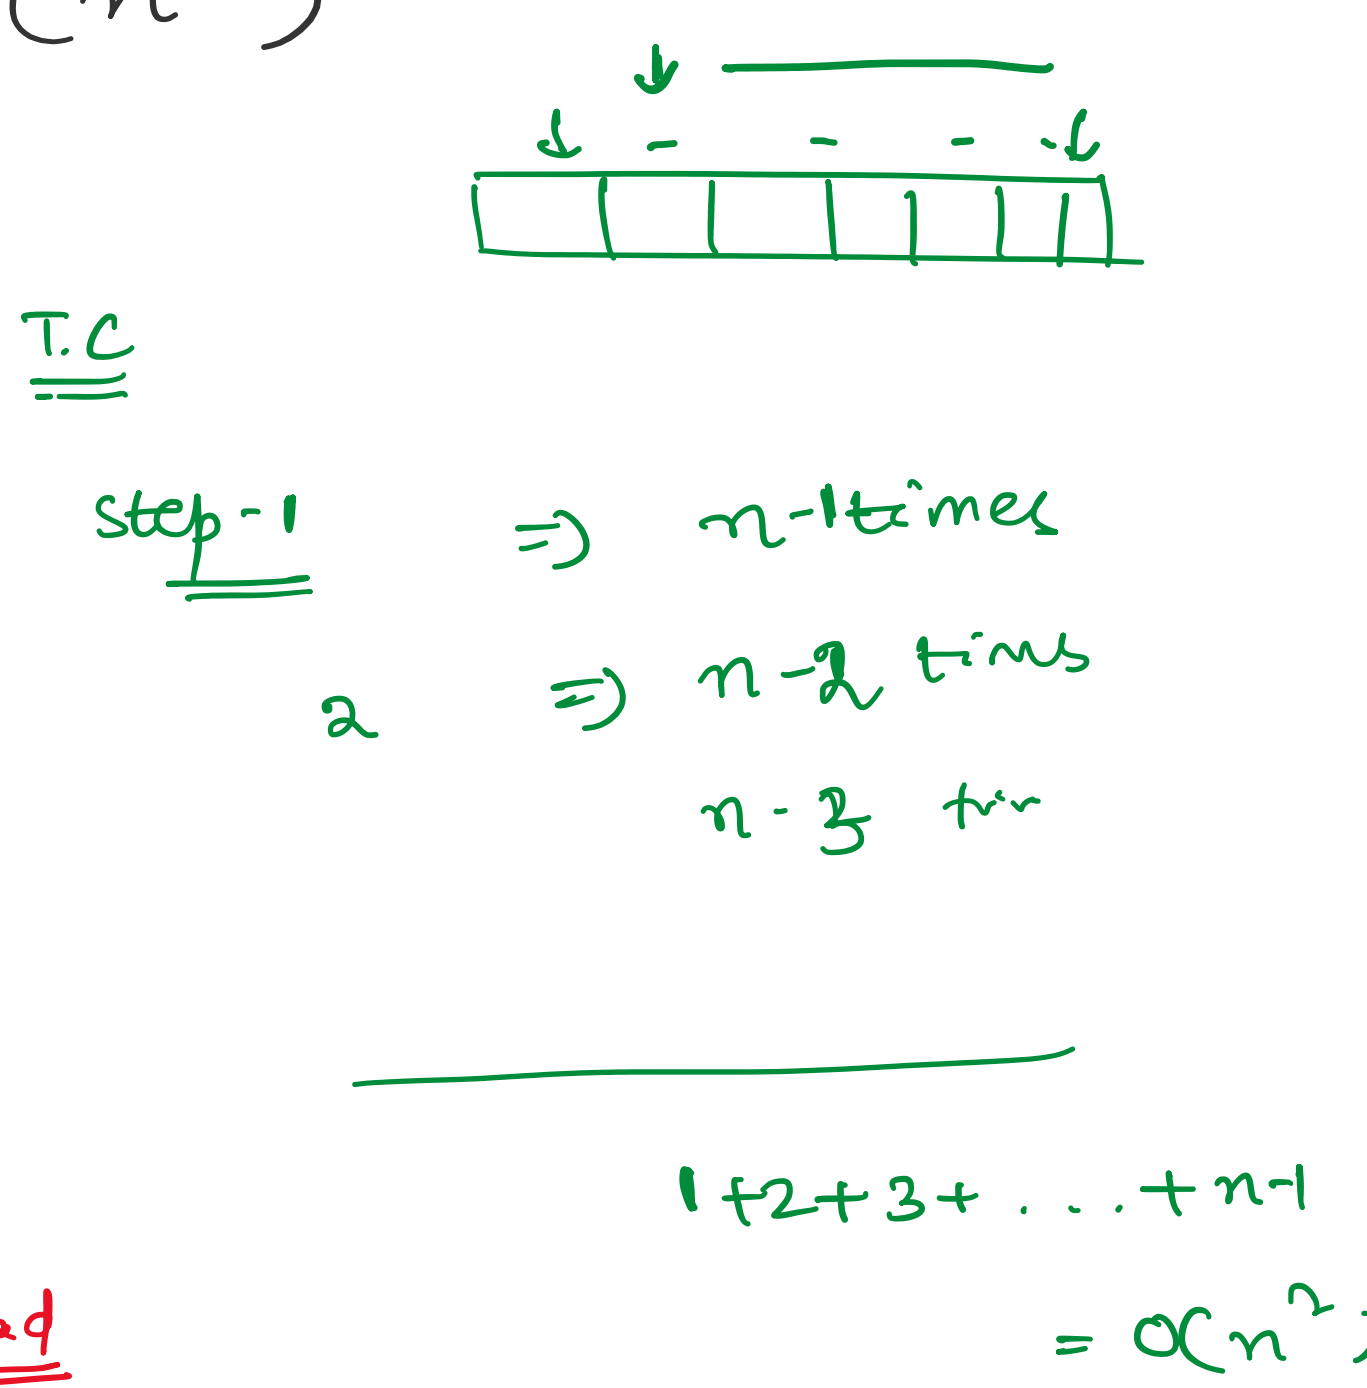 (n
T.C
step-1 => n-1 times
2 => n-2 tims
n-3
1+2+3+ . . . + n-1
= O(n²)